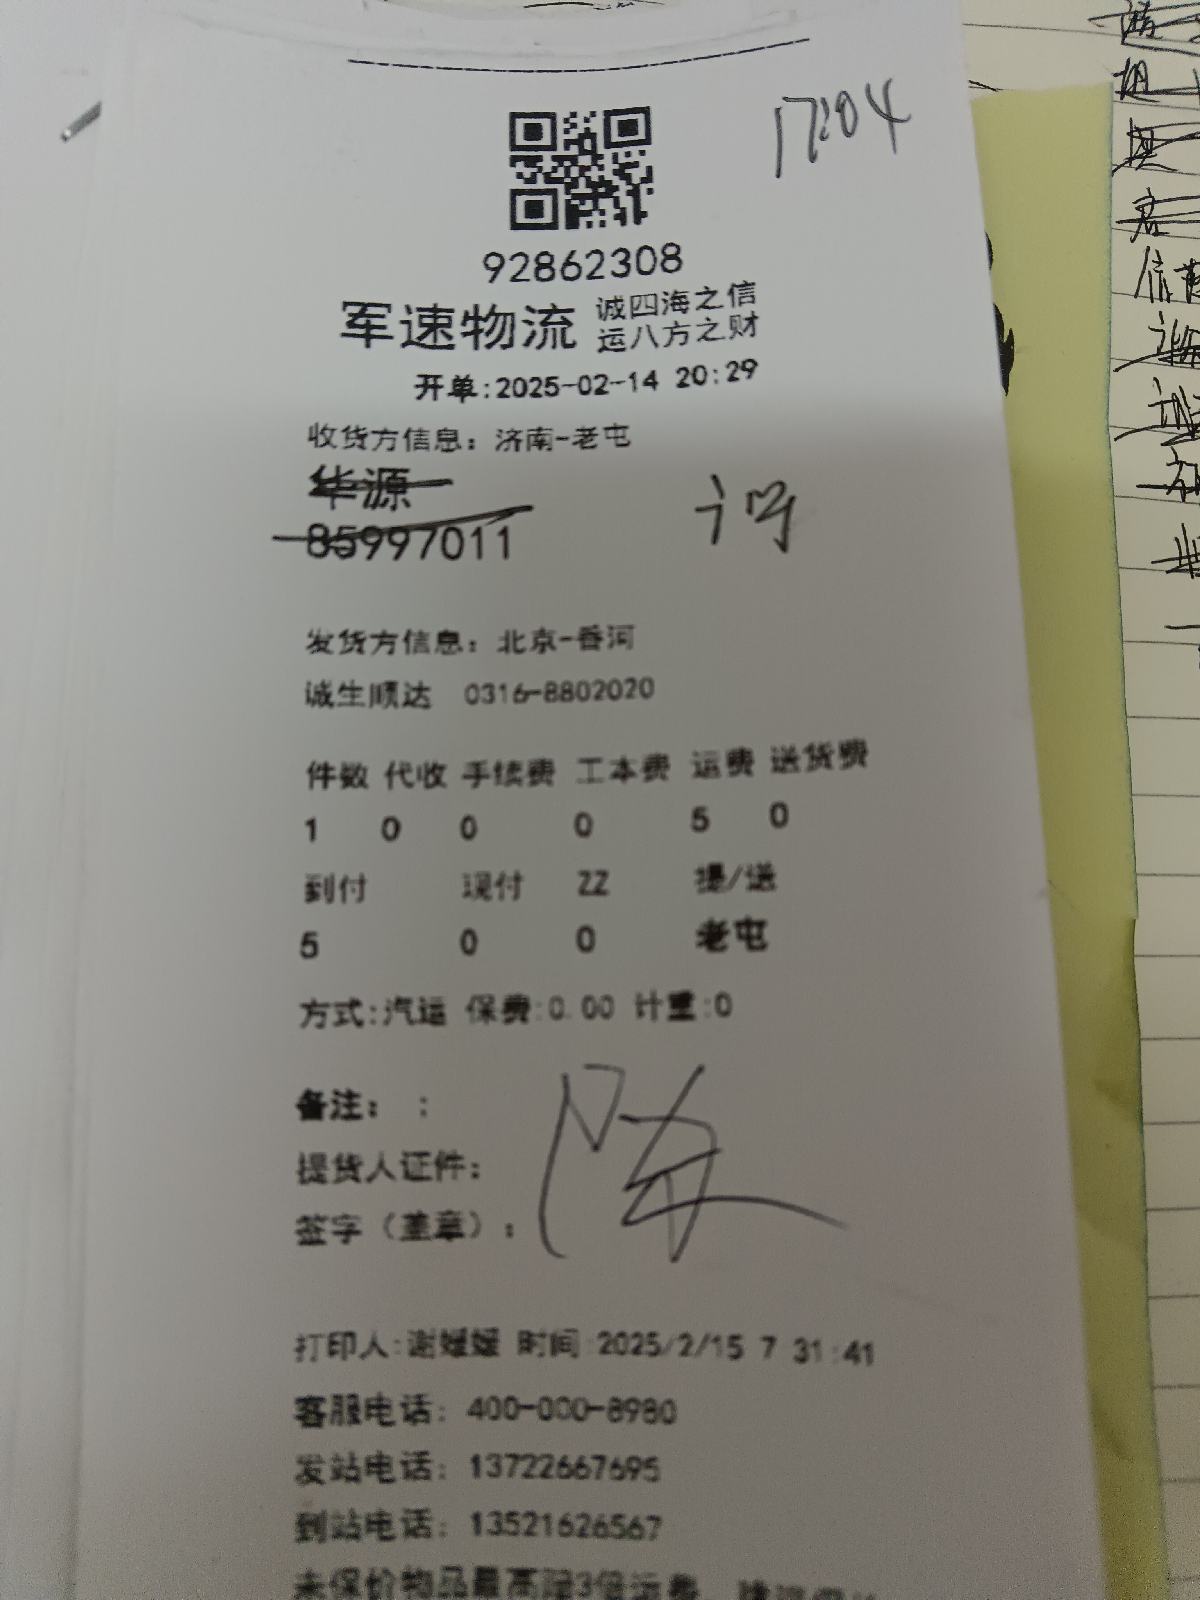 17:04
92862308
军速物流 诚四海之信
运八方之财
开单:2025-02-14 20:29
收货方信息: 济南-老屯
华源
85997011
发货方信息: 北京-香河
诚生顺达 0316-8802020
件数 代收 手续费 工本费 运费 送货费
1 0 0 0 5 0
到付 现付 ZZ 提/送
5 0 0 老屯
方式:汽运 保费:0.00 计重:0
备注: :
提货人证件:
签字(盖章):
打印人:谢媛媛 时间:2025/2/15 7:31:41
客服电话: 400-000-8980
发站电话: 13722667695
到站电话: 13521626567
未保价物品最高赔3倍运费